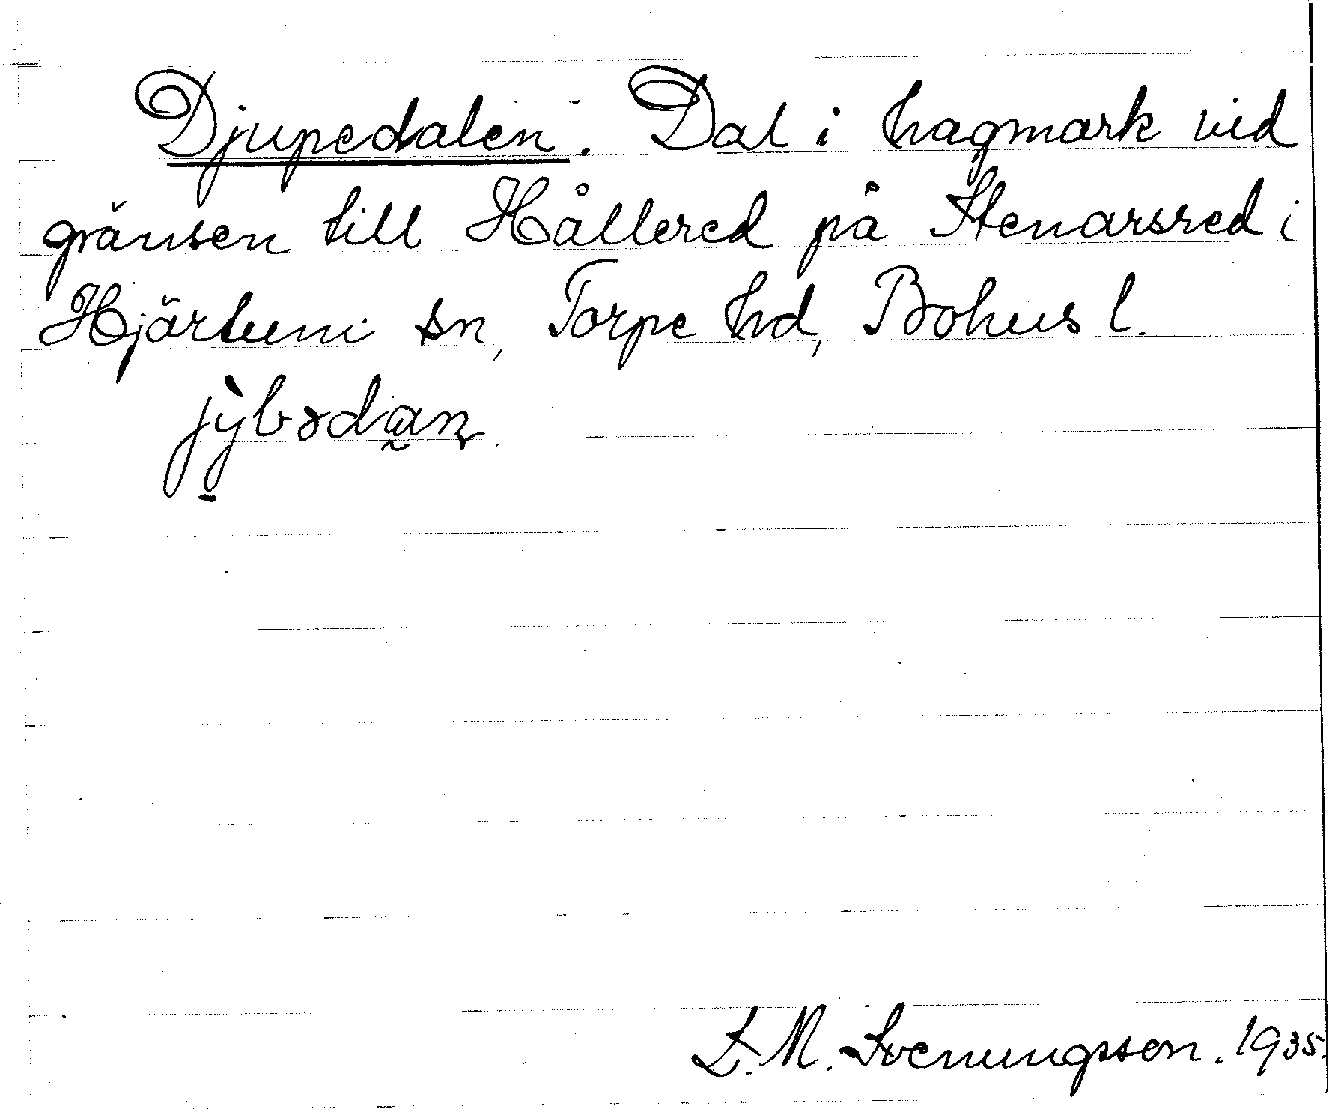 Djupedalen. Dal i hagmark vid
gränsen till Hållered på Stenarsred i
Hjärtum sn, Torpe hd, Bohus l.
S. M. Svenungsson. 1935.